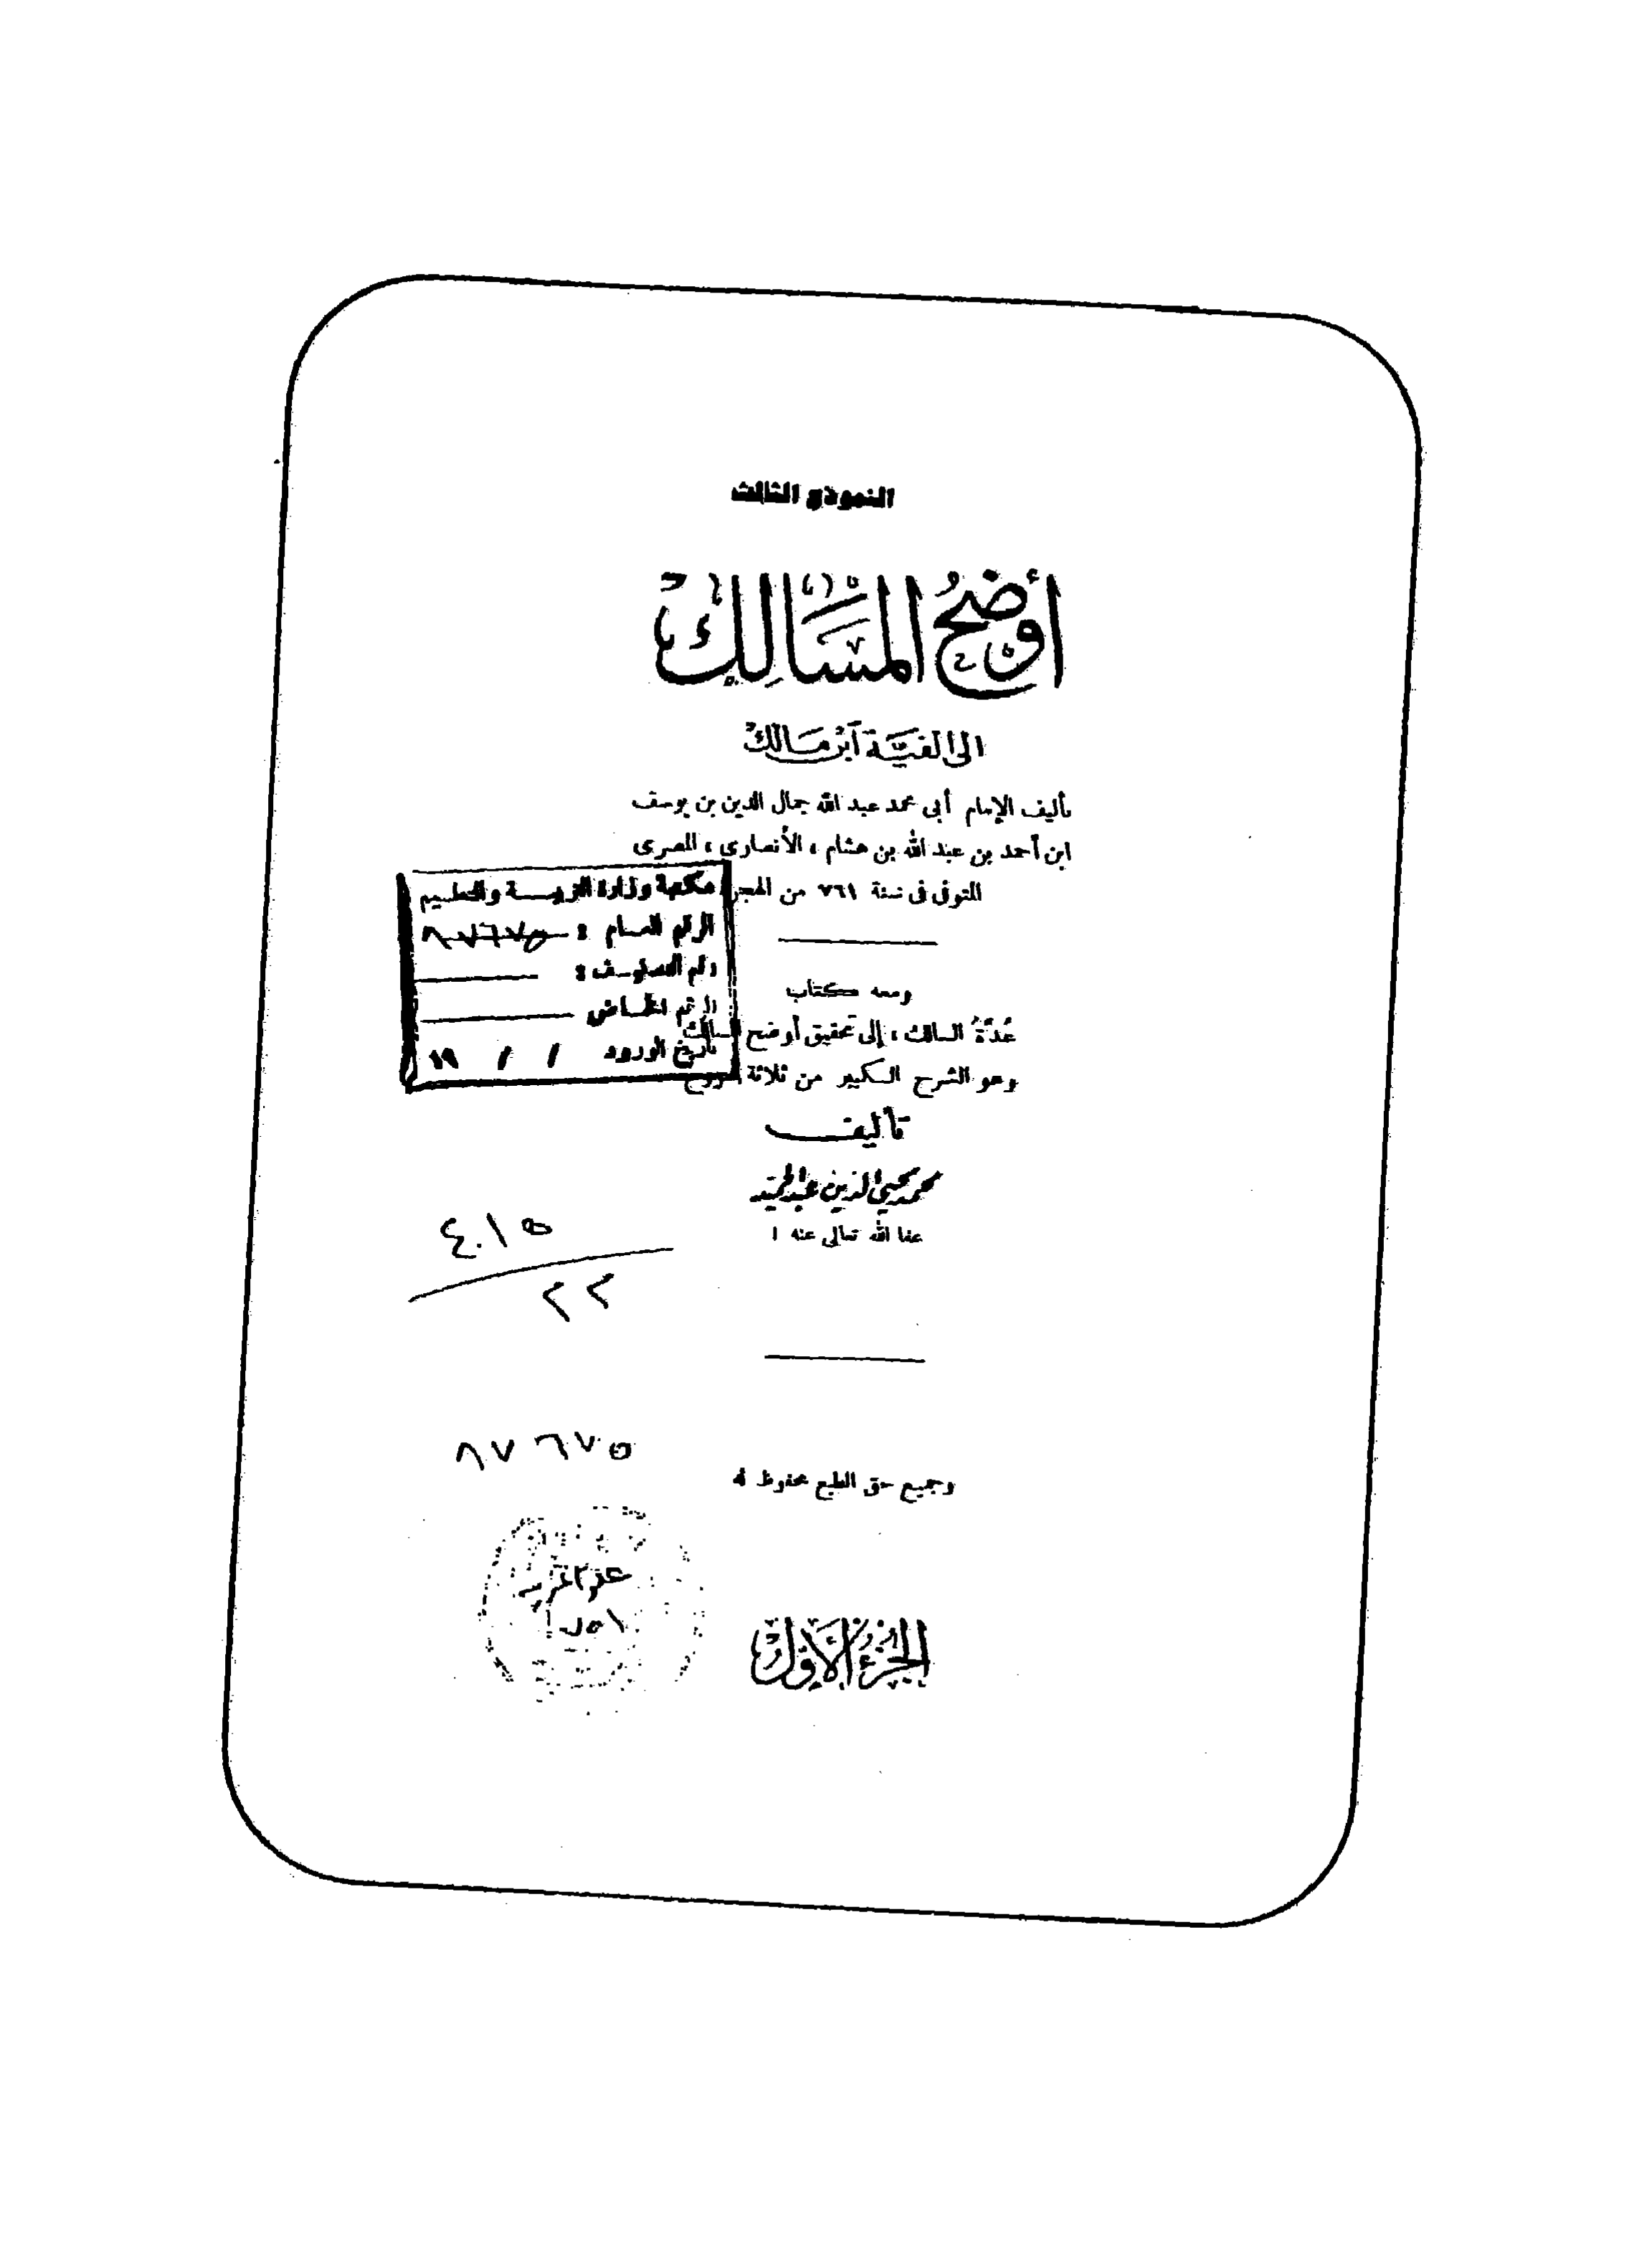 النموذج الثالث
أَوْضَحُ المَسَالِكْ
إلى ألفيَّة ابْن مَالِكْ
تأليف الإمام أبى محمد عبد الله جمال الدين بن يوسف
ابن أحمد بن عبد الله بن هشام ، الأنصارى ، المصرى
المتوفى فى سنة ٧٦١ من الهجرة
مكتبة وزارة التربيــة والتعليم
الرقم العـام : ٨٧٦٧٥
رقم التصنيـف :
الرقم الخـاص
تاريخ الورود / / ١٩
ومعه كتاب
عُدَّةُ السالك ، إلى تحقيق أوضح المسالك
وهو الشرح الكبير من ثلاثة شروح
تأليف
محمد محيي الدين عبد الحميد
عفا الله تعالى عنه !
٤.١٥
٢٢
٨٧٦٧٥
وجميع حق الطبع محفوظ له
الجزء الأول